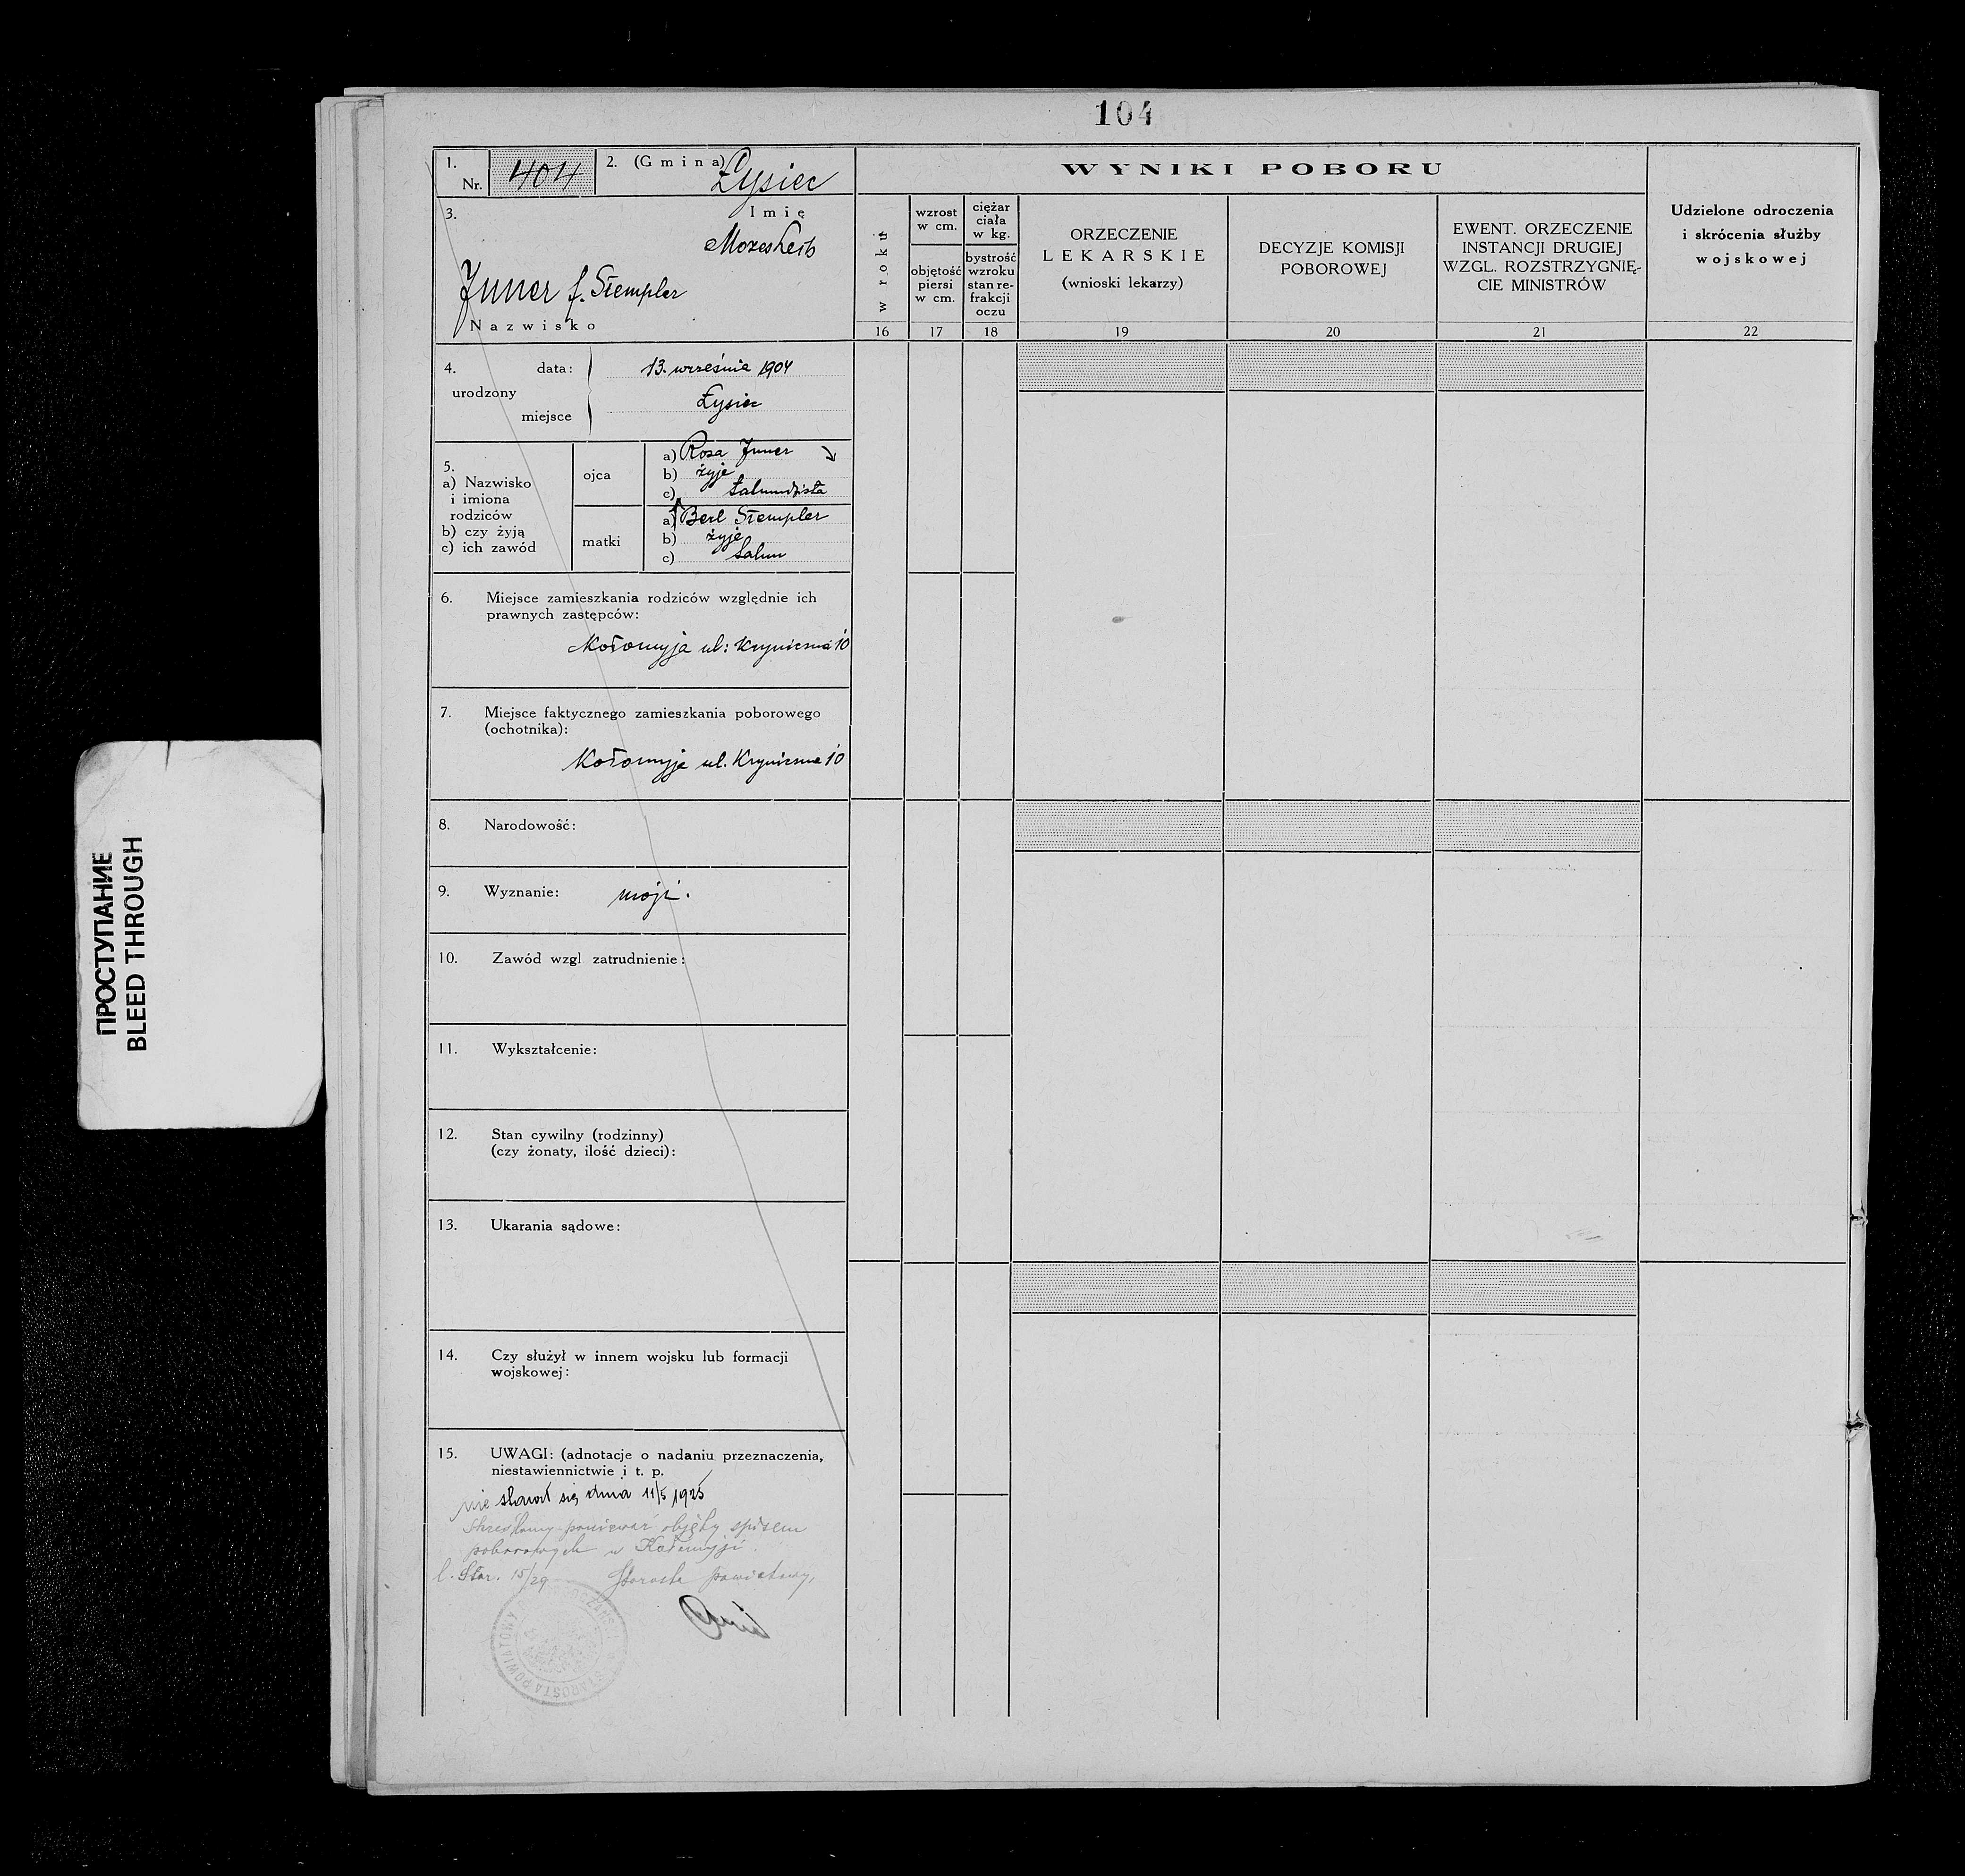 104
1.
Nr. 404
2. (Gmina) Łysiec
3.
Imię
Mozes Leib
Juner f. Stempler
Nazwisko
4.
urodzony
data: 13. września 1904
miejsce Łysiec
5.
a) Nazwisko
i imiona
rodziców
b) czy żyją
c) ich zawód
ojca
a) Rosa Juner
b) żyje
c) talmudzista
matki
a) Berl Stempler
b) żyje
c)
6. Miejsce zamieszkania rodziców względnie ich
prawnych zastępców:
Kołomyja ul: Kryniczna 10
7. Miejsce faktycznego zamieszkania poborowego
(ochotnika):
Kołomyja ul. Kryniczna 10
8. Narodowość:
9. Wyznanie: mojż.
10. Zawód wzgl zatrudnienie:
11. Wykształcenie:
12. Stan cywilny (rodzinny)
(czy żonaty, ilość dzieci):
13. Ukarania sądowe:
14. Czy służył w innem wojsku lub formacji
wojskowej:
15. UWAGI: (adnotacje o nadaniu przeznaczenia,
niestawiennictwie i t. p.
nie stawił się dnia 11/5 1925
Skreślony ponieważ objęty spisem
poborowych w Kołomyji.
l. Star. 15/29 Starosta Powiatowy,
STAROSTA POWIATOWY
WYNIKI POBORU
w roku
16
wzrost
w cm.
objętość
piersi
w cm.
17
ciężar
ciała
w kg.
bystrość
wzroku
stan re-
frakcji
oczu
18
ORZECZENIE
LEKARSKIE
(wnioski lekarzy)
19
DECYZJE KOMISJI
POBOROWEJ
20
EWENT. ORZECZENIE
INSTANCJI DRUGIEJ
WZGL. ROZSTRZYGNIĘ-
CIE MINISTRÓW
21
Udzielone odroczenia
i skrócenia służby
wojskowej
22
ПРОСТУПАНИЕ
BLEED THROUGH